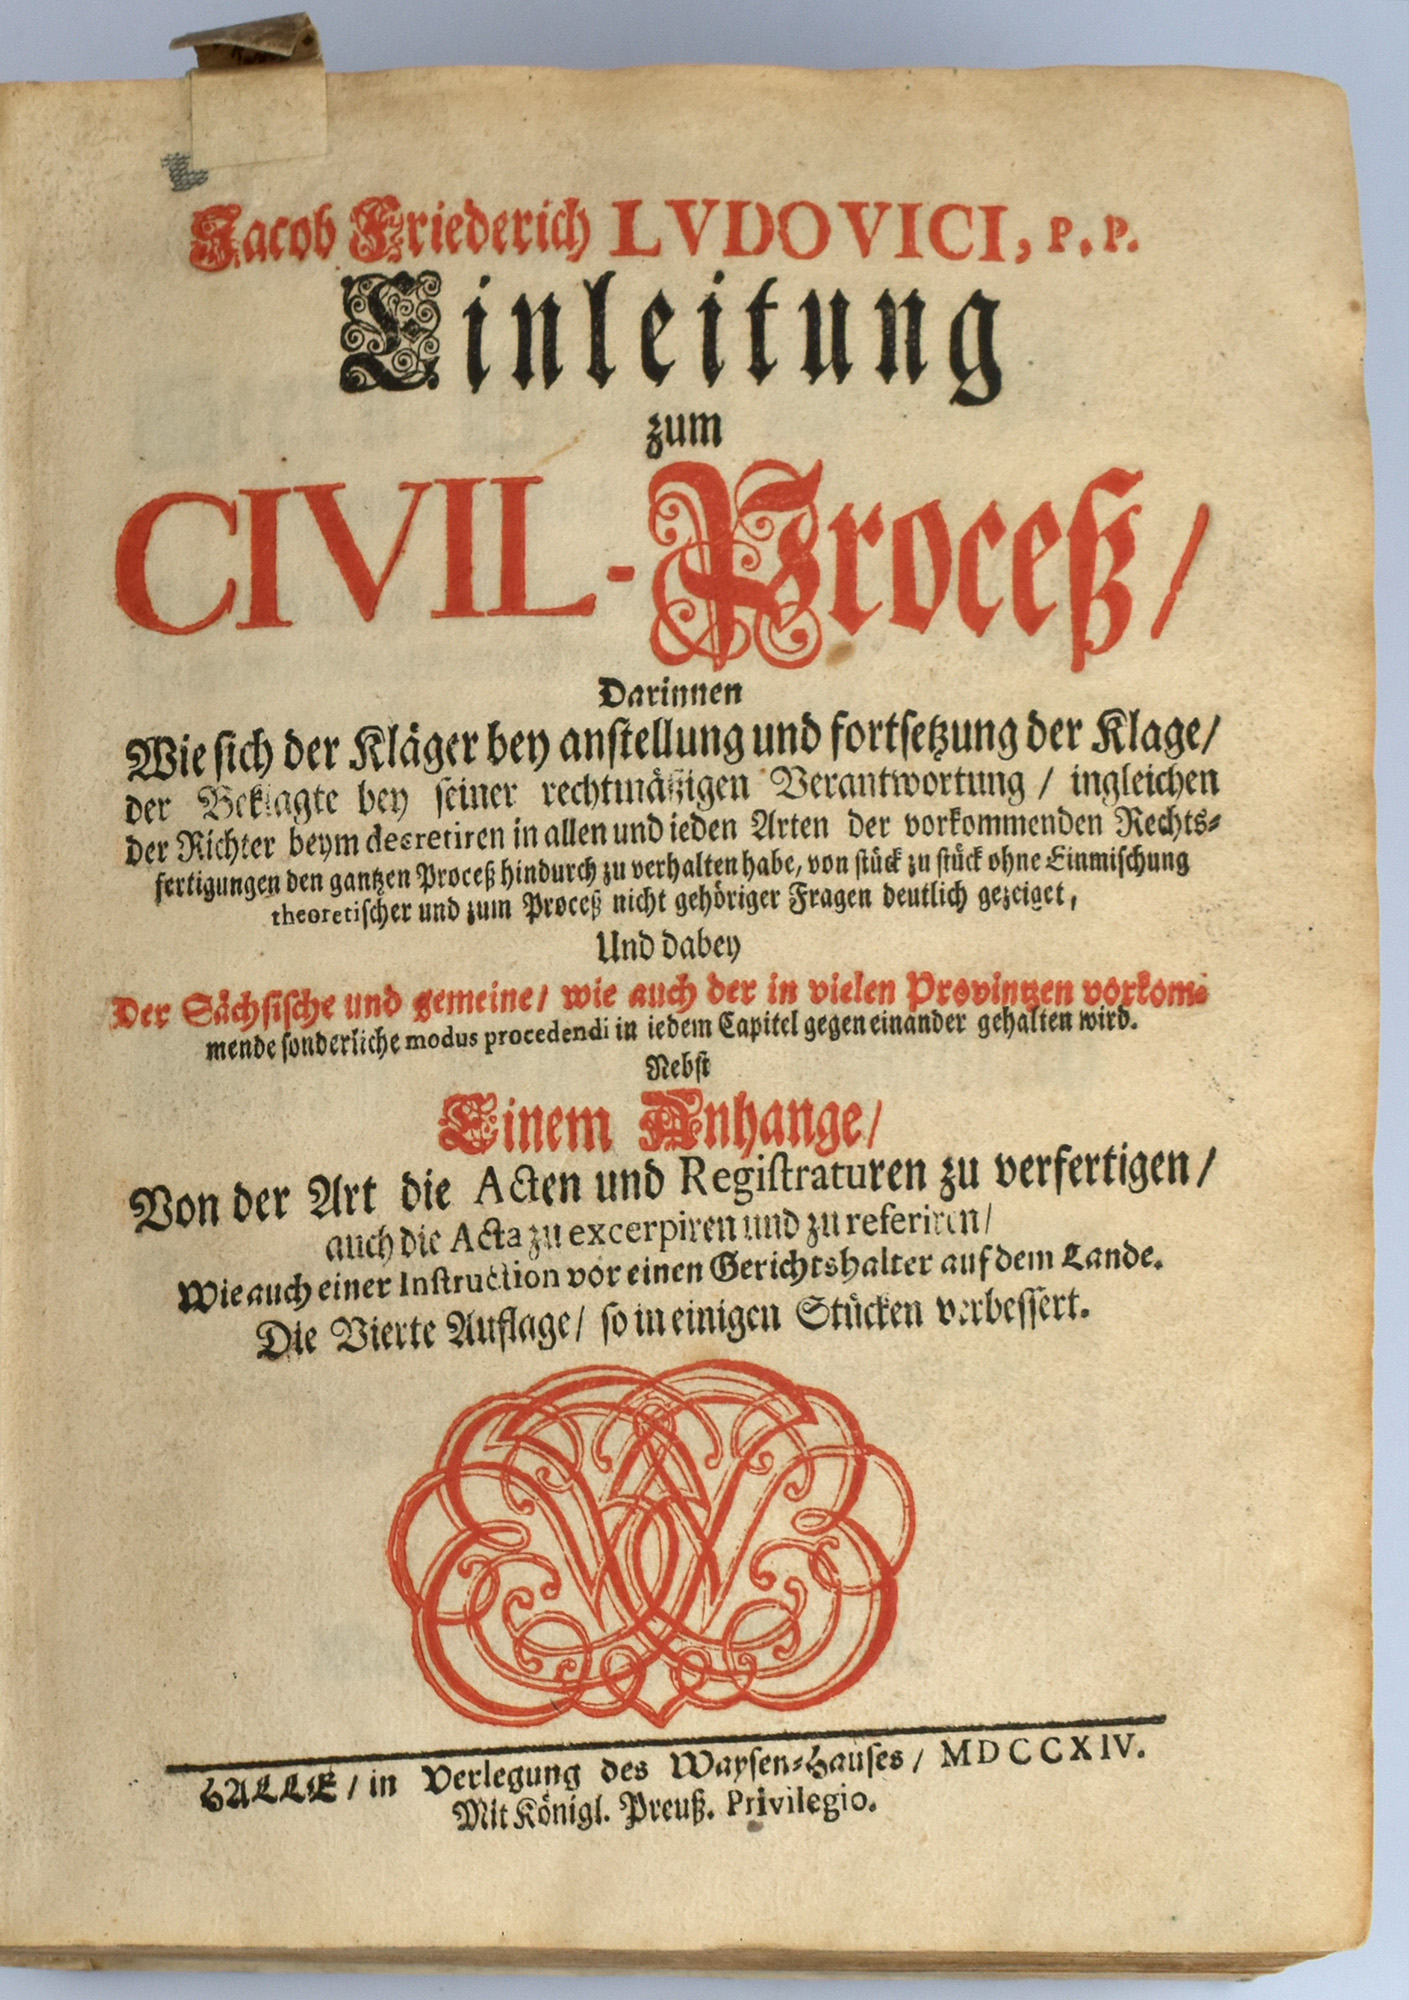 Jacob Friederich LVDOVICI, P. P.
Einleitung
zum
CIVIL-Proceß/
Darinnen
Wie sich der Kläger bey anstellung und fortsetzung der Klage/
der Beklagte bey seiner rechtmäßigen Verantwortung / ingleichen
der Richter beym decretiren in allen und ieden Arten der vorkommenden Rechts-
fertigungen den gantzen Proceß hindurch zu verhalten habe, von stück zu stück ohne Einmischung
theoretischer und zum Proceß nicht gehöriger Fragen deutlich gezeiget,
Und dabey
Der Sächsische und gemeine/ wie auch der in vielen Provintzen vorkom-
mende sonderliche modus procedendi in iedem Capitel gegen einander gehalten wird.
Nebst
Einem Anhange/
Von der Art die Acten und Registraturen zu verfertigen/
auch die Acta zu excerpiren und zu referiren/
Wie auch einer Instruction vor einen Gerichtshalter auf dem Lande.
Die Vierte Auflage/ so in einigen Stücken verbessert.
HALLE/ in Verlegung des Waysen-Hauses/ MDCCXIV.
Mit Königl. Preuß. Privilegio.